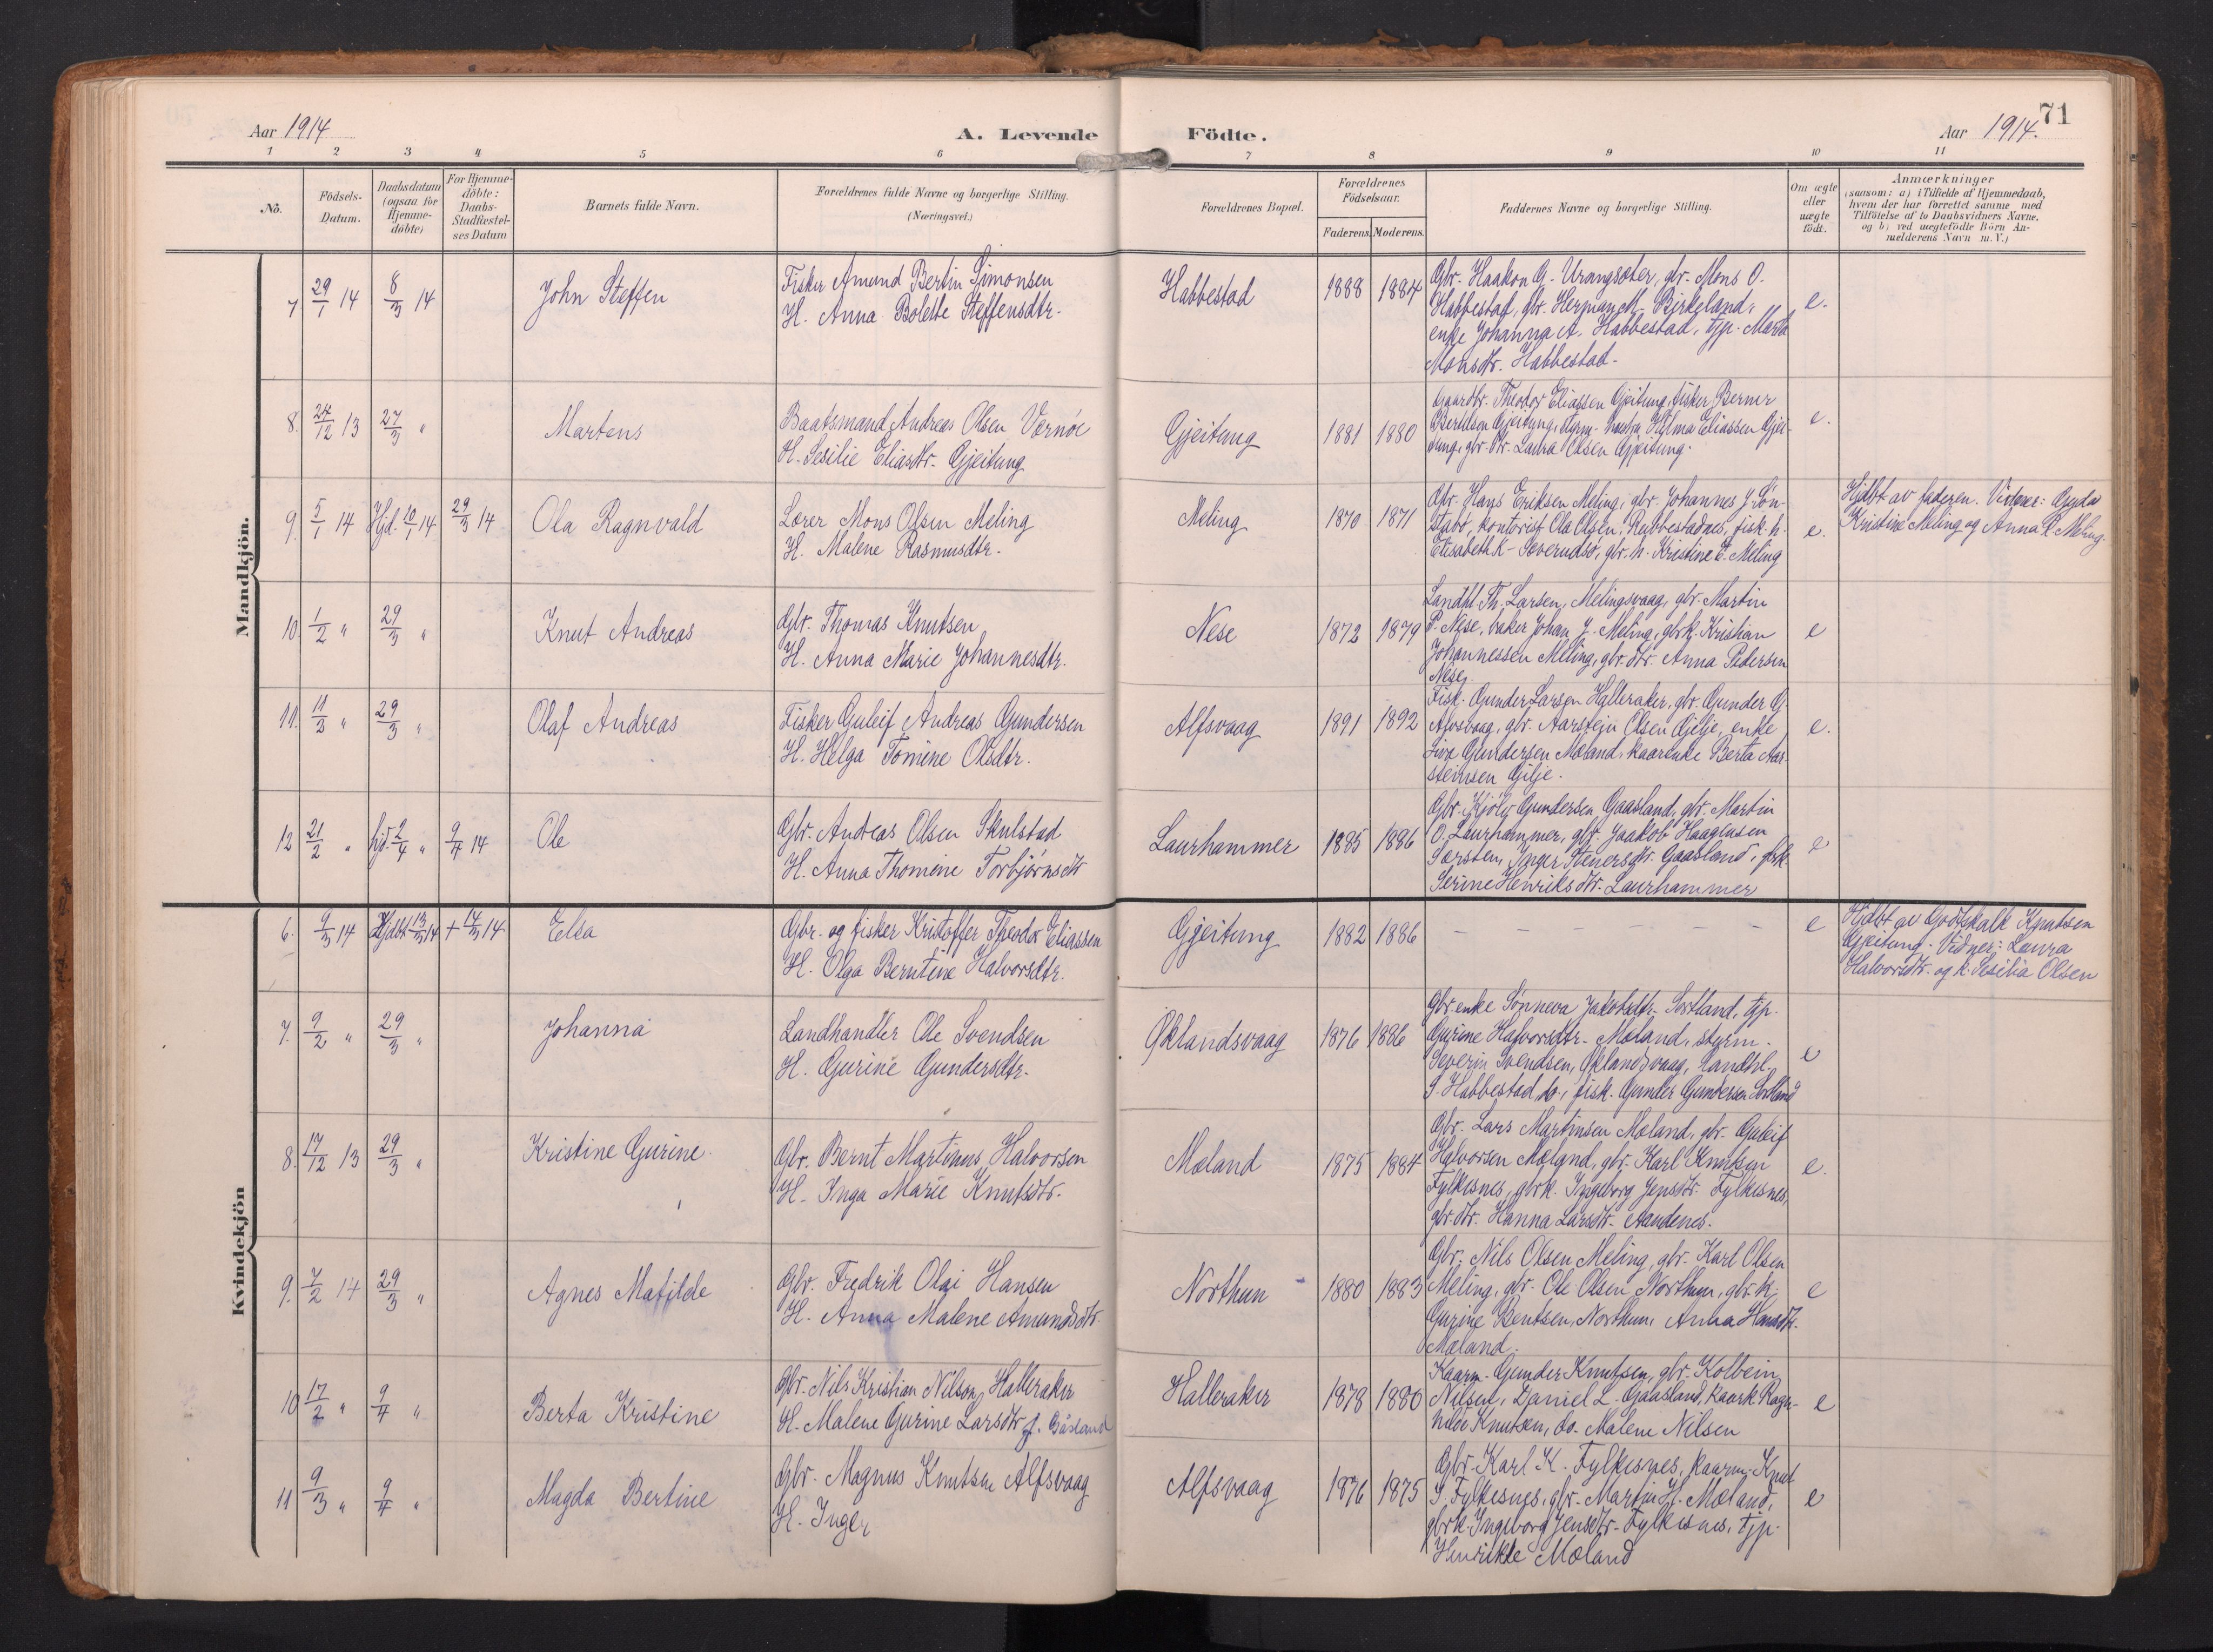 Aar 1914
A. Levende Födte.
71
Aar 1914.
1 2 3 4 5 6 7 8 9 10 11
No.
Födsels-
Datum.
Daabsdatum
(ogsaa for
Hjemme-
döbte)
For Hjemme-
döbte:
Daabs-
Stadfæstel-
ses Datum
Barnets fulde Navn.
Forældrenes fulde Navne og borgerlige Stilling.
(Næringsvei.)
Forældrenes Bopæl.
Forældrenes
Födselsaar.
Faderens. Moderens.
Faddernes Navne og borgerlige Stilling.
Om ægte
eller
uægte
födt.
Anmærkninger
(saasom: a) i Tilfælde af Hjemmedaab,
hvem der har forrettet samme med
Tilföielse af to Daabsvidners Navne,
og b) ved uægtefödte Börn An-
melderens Navn m. V.)
Mandkjön.
7 29/1 14 8/3 14
John Steffen
Fisker Amund Bertin Simonsen
H. Anna Bolette Steffensdtr.
Habbestad
1888 1884
Gbr. Haakon G. Urangsæter, gbr. Mons O.
Habbestad, gbr. Herman M. Birkeland,
enke Johanna A. Habbestad, tjp. Marta
Monsdtr. Habbestad.
e.
8. 24/12 13 27/3 "
Martens
Baatsmand Andreas Olsen Vernøe
H. Sesilie Eliasdtr. Gjeitung
Gjeitung
1881 1880
Gaardbr. Theodor Eliassen Gjeitung, fisker Berner
Bertelsen Gjeitung, styrm. hustru Hilma Eliassen Gjei-
tung, gbr. dtr. Laura Olsen Gjeitung.
e.
9. 5/1 14 Hjd. 10/1 14 29/3 14
Ola Ragnvald
Lærer Mons Olsen Meling
H. Malene Rasmusdtr.
Meling
1870 1871
Gbr. Hans Eriksen Meling, gbr. Johannes J. Søn-
stabø, kontorist Ola Olsen, Rubbestadnes, fisk. h.
Elisabeth K. Severudsø, gbr. h. Kristine E. Meling
e.
Hjdbt av faderen. Vidner: Gyda
Kristine Meling og Anna R. Meling.
10. 1/2 " 29/3 "
Knut Andreas
Gbr. Thomas Knutsen
H. Anna Marie Johannesdtr.
Nese
1872 1879
Landhl. Th. Larsen, Melingsvaag, gbr. Martin
P. Nese, baker Johan J. Meling, gbrk. Kristian
Johannessen Meling, gbr. dtr. Anna Pedersen
Nese.
e
11. 11/2 " 29/3 "
Olaf Andreas
Fisker Guleif Andreas Gundersen
H. Helga Tomine Olsdtr.
Alfsvaag
1891 1892
Fisk. Gunder Larsen Halleraker, gbr. Gunder G.
Alfsvaag, gbr. Aarstein Olsen Gjelje, enke
Siva Gundersen Mæland, kaarenke Berta Aar-
steinsen Gilje.
e.
12 21/2 " hjd. 2/4 " 9/4 14
Ole
Gbr. Andreas Olsen Skulstad
H. Anna Thomine Torbjørnsdtr
Laurhammer
1885 1886
Gbr. Kjøly Gundersen Gaasland, gbr. Martin
O. Laurhammer, gbr. Jaakob Haagensen
Særsten, Inger Stenersdtr. Gaasland, gbrk.
Serine Henriksdtr. Laurhammer
e
Kvindekjön
6. 9/3 14 Hjdbt 13/3 14 + 14/3 14
Elsa
Gbr. og fisker Kristoffer Theodor Eliassen
H. Olga Berntine Halvorsdtr.
Gjeitung
1882 1886
- - - - - - -
e
Hjdbt av Godtskalk Knutsen
Gjeitung. Vidner: Laura
Halvorsdtr. og k. Sesilia Olsen
7. 9/2 " 29/3 "
Johanna
Landhandler Ole Svendsen
H. Gurine Gundersdtr.
Øklandsvaag
1876 1886
Gbr. enke Sønneva Jakobsdtr. Sortland, tjp.
Gurine Halvorsdtr. Mæland, styrm.
Severin Svendsen, Øklandsvaag, Landhl.
S. Habbestad do., fisk. Gunder Gundersen Sortland
e
8. 17/12 13 29/3 "
Kristine Gurine.
Gbr. Bernt Martinus Halvorsen
H. Inga Marie Knutsdtr.
Mæland
1875 1884
Gbr. Lars Martinsen Mæland, gbr. Guleif
Halvorsen Mæland, gbr. Karl Knutsen
Fylkesnes, gbrk. Ingeborg Jensdtr. Fylkesnes,
gbr. dtr. Hanna Larsdtr. Aandenes.
e.
9. 7/2 14 29/3 "
Agnes Matilde
Gbr. Fredrik Olai Hansen
H. Anna Malene Amundsdtr
Northun
1880 1883
Gbr. Nils Olsen Meling, gbr. Karl Olsen
Meling, gbr. Ole Olsen Northun, gbr. k.
Gurine Bentsen, Northun, Anna Hansdtr.
Mæland.
e
10 17/2 " 9/4 "
Berta Kristine
Gbr. Nils Kristian Nilsen, Halleraker
H. Malene Gurine Larsdtr f. Gåsland
Halleraker
1878 1880
Kaarm. Gunder Knutsen, gbr. Kolbein
Nilsen, Daniel L. Gaasland, Kaark. Ragn-
hilde Knutsen, do. Malene Nilsen
e
11 9/3 " 9/4 "
Magda Bertine
Gbr. Magnus Knutsen Alfsvaag
H. Inger
Alfsvaag
1876 1875
Gbr. Karl K. Fylkesnes, kaarm. Knut
S. Fylkesnes, gbr. Martin H. Mæland,
gbrk. Ingeborg Jensdtr. Fylkesnes, tjp.
Henrikke Mæland
e